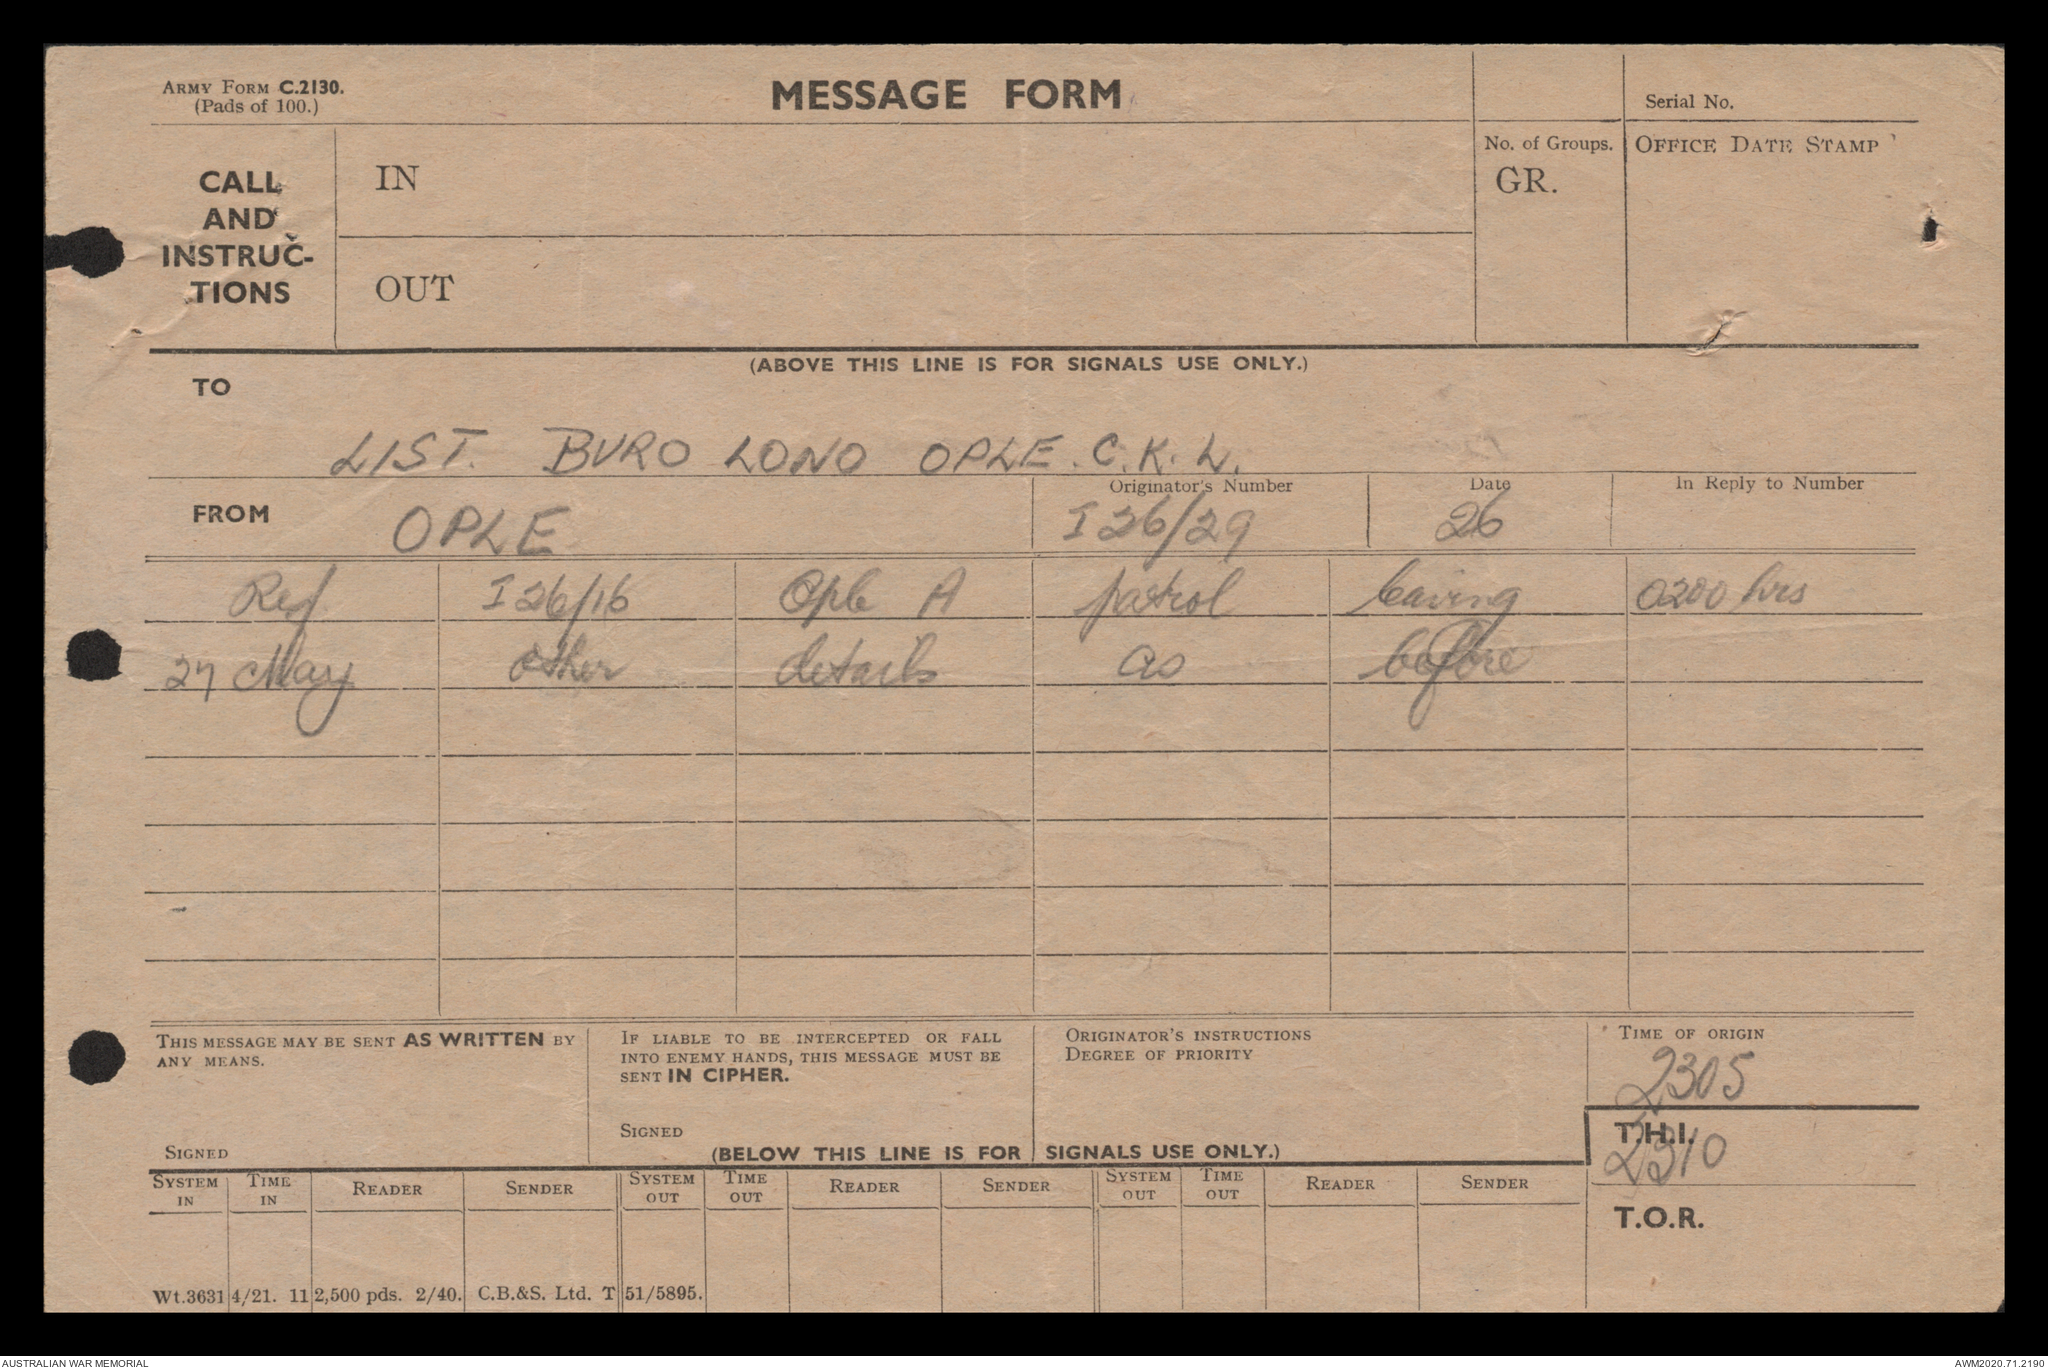 ARMY FORM C.2130.
(Pads of 100.)
MESSAGE FORM
Serial No.
CALL
AND
INSTRUC-
TIONS
IN
OUT
No. of Groups.
GR.
OFFICE DATE STAMP
(ABOVE THIS LINE IS FOR SIGNALS USE ONLY.)
TO
LIST. BURO LONO OPLE. C.K.L.
FROM OPLE
Originator's Number
I 26/29
Date
26
In Reply to Number
Ref I 26/16 Ople A patrol leaving 0200 hrs
27 May other details as before
THIS MESSAGE MAY BE SENT AS WRITTEN BY
ANY MEANS.
SIGNED
IF LIABLE TO BE INTERCEPTED OR FALL
INTO ENEMY HANDS, THIS MESSAGE MUST BE
SENT IN CIPHER.
SIGNED
ORIGINATOR'S INSTRUCTIONS
DEGREE OF PRIORITY
TIME OF ORIGIN
2305
T.H.I.
2310
T.O.R.
(BELOW THIS LINE IS FOR SIGNALS USE ONLY.)
SYSTEM IN TIME IN READER SENDER SYSTEM OUT TIME OUT READER SENDER SYSTEM OUT TIME OUT READER SENDER
Wt.36314/21. 112,500 pds. 2/40. C.B.&S. Ltd. T51/5895.
AUSTRALIAN WAR MEMORIAL
AWM2020.71.2190